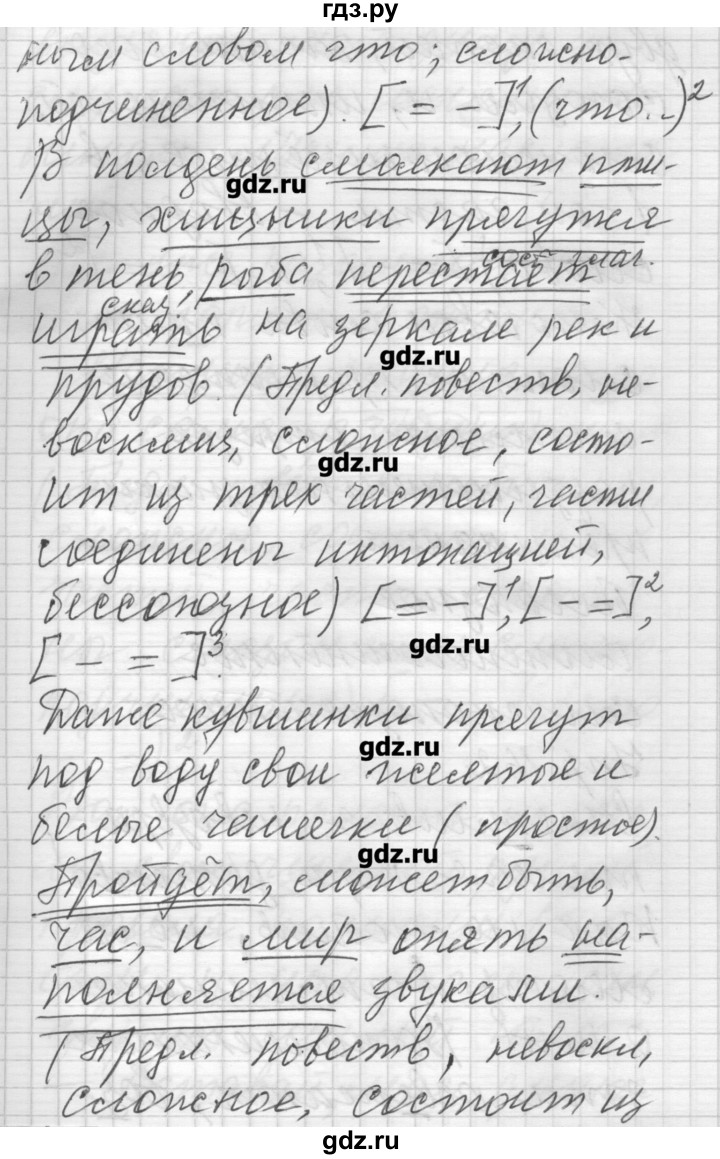 гдз.ру
ным словом что; сложно-
подчиненное). [· = -]¹, (что..)²
В полдень смолкают пти-
gdz.ru
цы, хищники прячутся
сост. глаг.
в тень, рыба перестаёт
сказ.
играть на зеркале рек и
gdz.ru
прудов. (Предл. повеств, не-
восклиц, сложное, состо-
gdz.ru
ит из трех частей, части
соединены интонацией,
бессоюзное) [= -]¹, [- =]²,
gdz.ru
[ - = ]³.
Даже кувшинки прячут
gdz.ru
под воду свои желтые и
белые чашечки (простое).
gdz.ru
Пройдёт, может быть,
час, и мир опять на-
полняется звуками.
(Предл. повеств, невоскл,
сложное, состоит из
gdz.ru